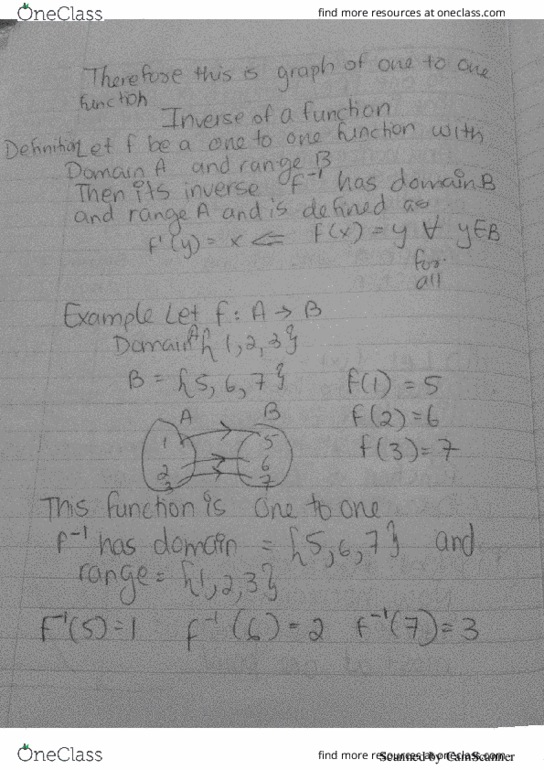 OneClass
find more resources at oneclass.com
Therefore this is graph of one to one
function
Inverse of a function
Definition Let f be a one to one function with
Domain A and range B
Then its inverse f⁻¹ has domain B
and range A and is defined as
f'(y) = x ⇐ f(x) = y ∀ y∈B
for
all
Example Let f : A → B
Domain A {1,2,3}
B = {5, 6, 7} f(1) = 5
A B f(2) = 6
1 5 f(3) = 7
2 6
3 7
This function is one to one
f⁻¹ has domain = {5,6,7} and
range = {1,2,3}
f⁻¹(5)=1 f⁻¹(6) = 2 f⁻¹(7) = 3
OneClass
find more resources at oneclass.com
Scanned by CamScanner